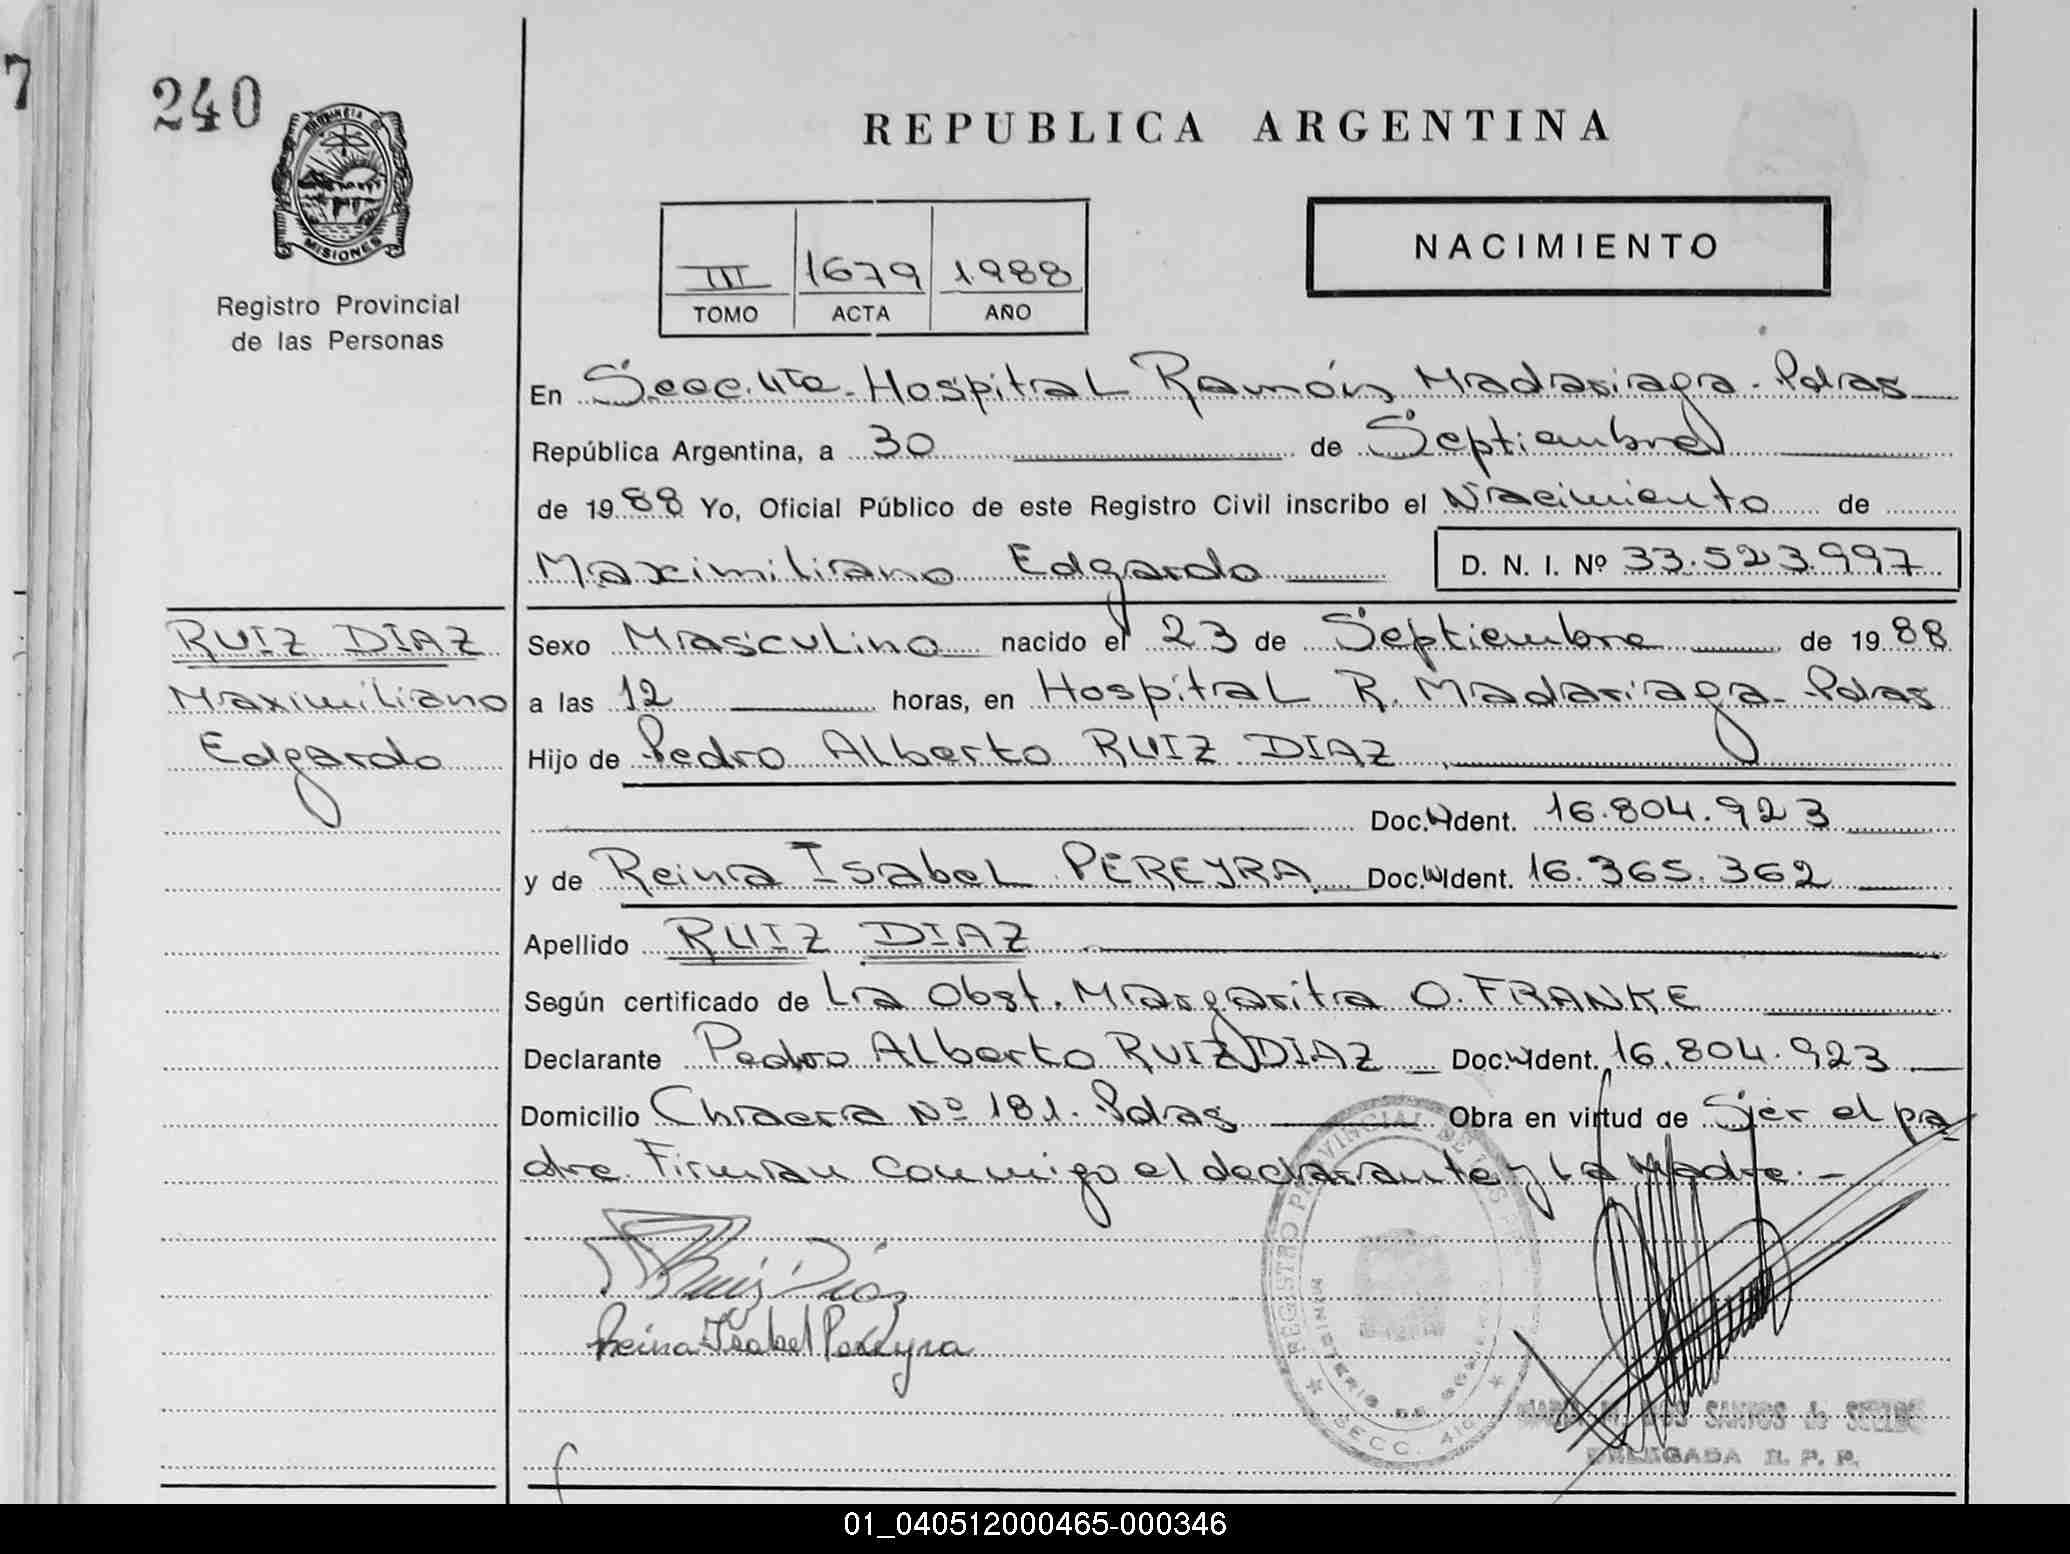 7
240
PROVINCIA DE
MISIONES
Registro Provincial
de las Personas
REPUBLICA ARGENTINA
III 1679 1988
TOMO ACTA AÑO
NACIMIENTO
En Secc. 4ta. Hospital Ramón Madariaga - Pdas
República Argentina, a 30 de Septiembre
de 1988 Yo, Oficial Público de este Registro Civil inscribo el Nacimiento de
Maximiliano Edgardo D. N. I. Nº 33.523.997
RUIZ DIAZ
Maximiliano
Edgardo
Sexo Masculino nacido el 23 de Septiembre de 1988
a las 12 horas, en Hospital R. Madariaga - Pdas
Hijo de Pedro Alberto RUIZ DIAZ
Doc. Ident. 16.804.923
y de Reina Isabel PEREYRA Doc. Ident. 16.365.362
Apellido RUIZ DIAZ
Según certificado de La Obst. Margarita O. FRANKE
Declarante Pedro Alberto RUIZ DIAZ Doc. Ident. 16.804.923
Domicilio Chacra Nº 181. Pdas Obra en virtud de Ser el pa
dre. Firman conmigo el declarante y la Madre. -
Ruiz Diaz
Reina Isabel Pereyra
REGISTRO PROVINCIAL DE LAS
MINISTERIO DE
SECC. 4ta
DOS SANTOS de
DELEGADA R. P. P.
01_040512000465-000346